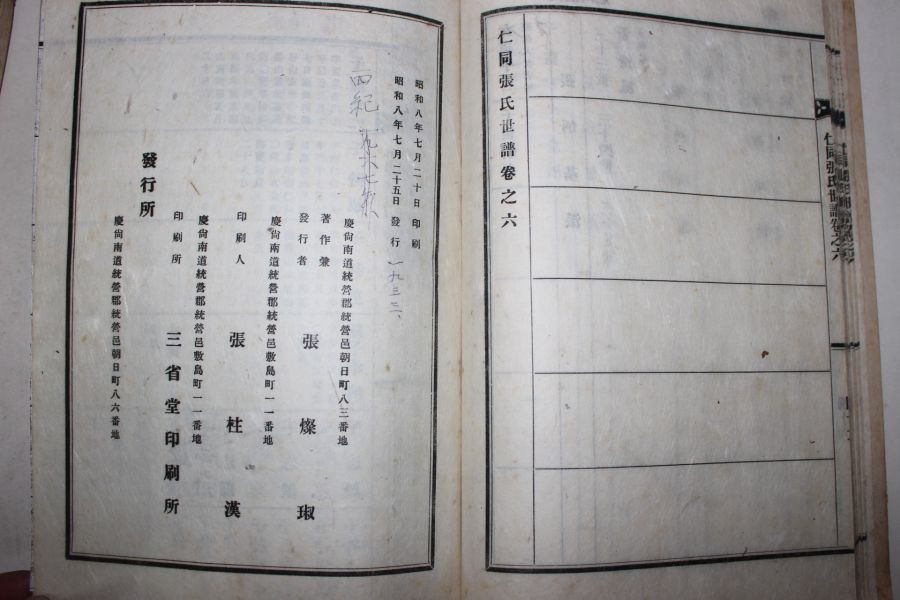 仁同張氏世譜卷之六
仁同張氏世譜卷之六
昭和八年七月二十日 印刷
昭和八年七月二十五日 發行
一九三三、
四紀
慶尙南道統營郡統營邑朝日町八三番地
著作兼
發行者 張燦淑
慶尙南道統營郡統營邑敷島町一一番地
印刷人 張柱漢
慶尙南道統營郡統營邑敷島町一一番地
印刷所 三省堂印刷所
發行所
慶尙南道統營郡統營邑朝日町八六番地